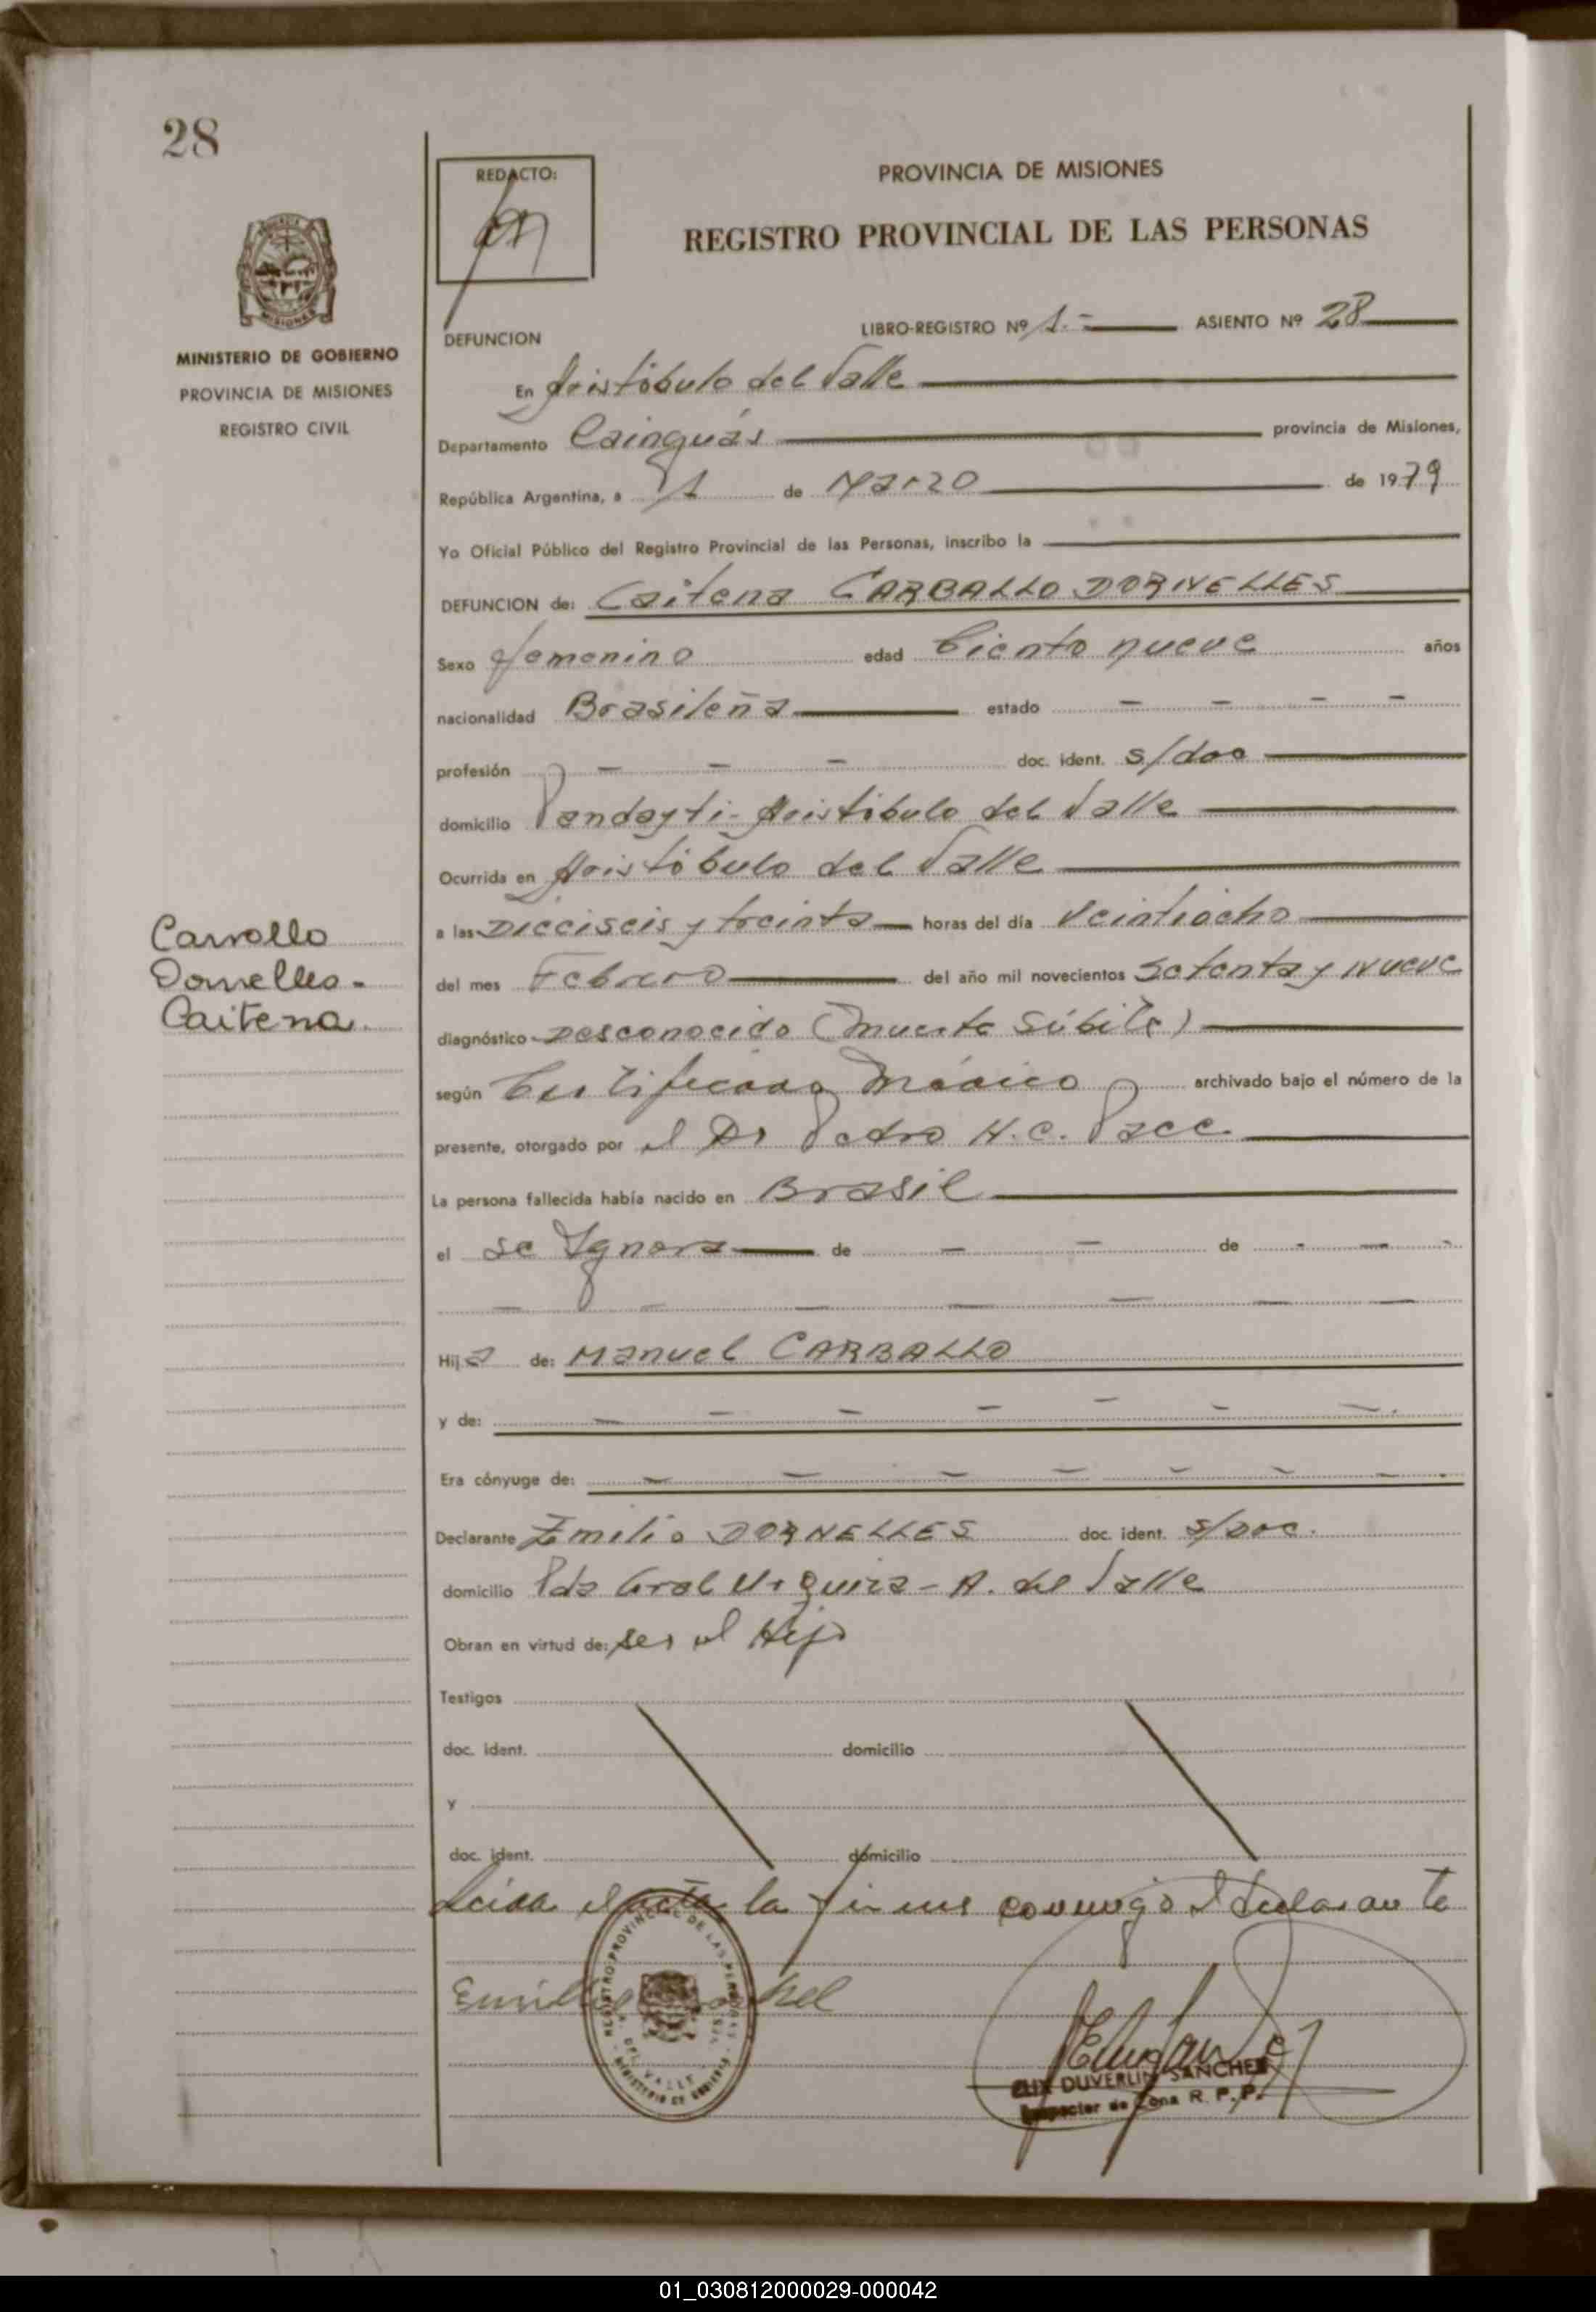 28
REDACTO:
PROVINCIA DE MISIONES
REGISTRO PROVINCIAL DE LAS PERSONAS
MINISTERIO DE GOBIERNO
PROVINCIA DE MISIONES
REGISTRO CIVIL
DEFUNCION
LIBRO-REGISTRO Nº 1.- ASIENTO Nº 28
En Aristóbulo del Valle
Departamento Cainguás provincia de Misiones,
República Argentina, a 1 de Marzo de 1979
Yo Oficial Público del Registro Provincial de las Personas, inscribo la
DEFUNCION de: Caitena CARBALLO DORNELLES
Sexo femenino edad Ciento nueve años
nacionalidad Brasileña estado - - - -
profesión - - - doc. ident. s/doc
domicilio Pindayti - Aristóbulo del Valle
Ocurrida en Aristóbulo del Valle
a las Dieciseis y treinta horas del día Veintiocho
del mes Febrero del año mil novecientos Setenta y Nueve
Carvollo
Dornelles -
Caitena.
diagnóstico Desconocido (Muerte Súbita)
según Certificado Médico archivado bajo el número de la
presente, otorgado por el Dr Pedro H.C. Pace
La persona fallecida había nacido en Brasil
el se Ignora de - - de - - -
- - - - - - -
Hija de: Manuel CARBALLO
y de: - - - - - - -
Era cónyuge de: - - - - - - - -
Declarante Emilio DORNELLES doc. ident. s/Doc.
domicilio Pda Gral Urquiza - A. del Valle
Obran en virtud de: ser el Hijo
Testigos
doc. ident. domicilio
y
doc. ident. domicilio
Leida el acta la firma conmigo el declarante
REGISTRO PROVINCIAL DE LAS PERSONAS
DEL VALLE
MINISTERIO DE GOBIERNO
DUVERLIN SANCHEZ
Inspector de Zona R. P. P.
01_030812000029-000042